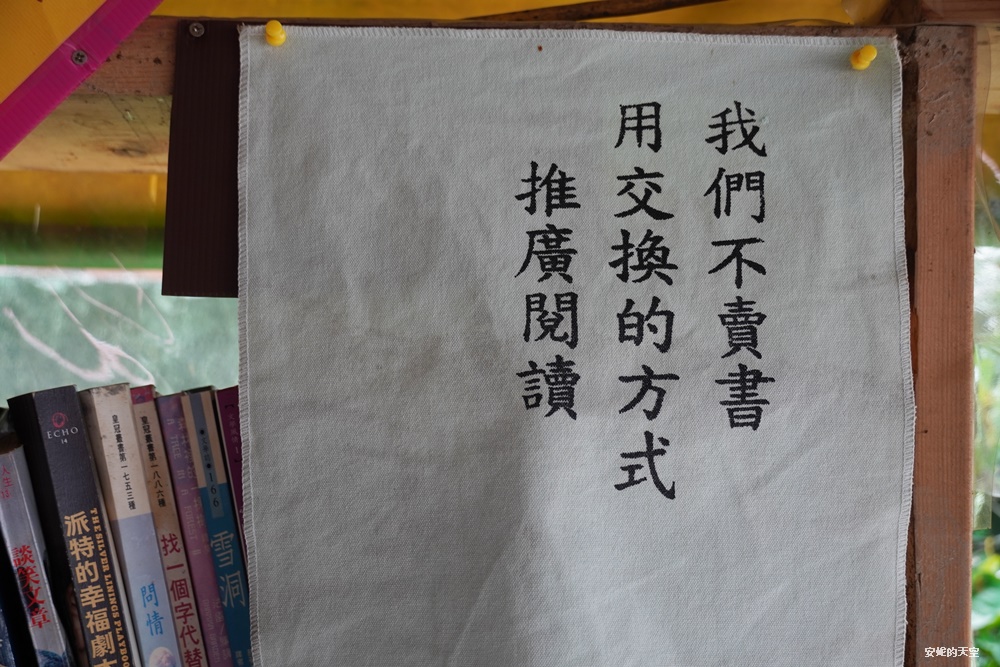 我們不賣書
用交換的方式
推廣閱讀
ECHO
14
派特的幸福劇
THE SILVER LININGS PLAYBOOK
談笑文章
皇冠叢書第一七五三種
問情
皇冠叢書第一八八六種
找一個字代替
166
雪洞
安妮的天空